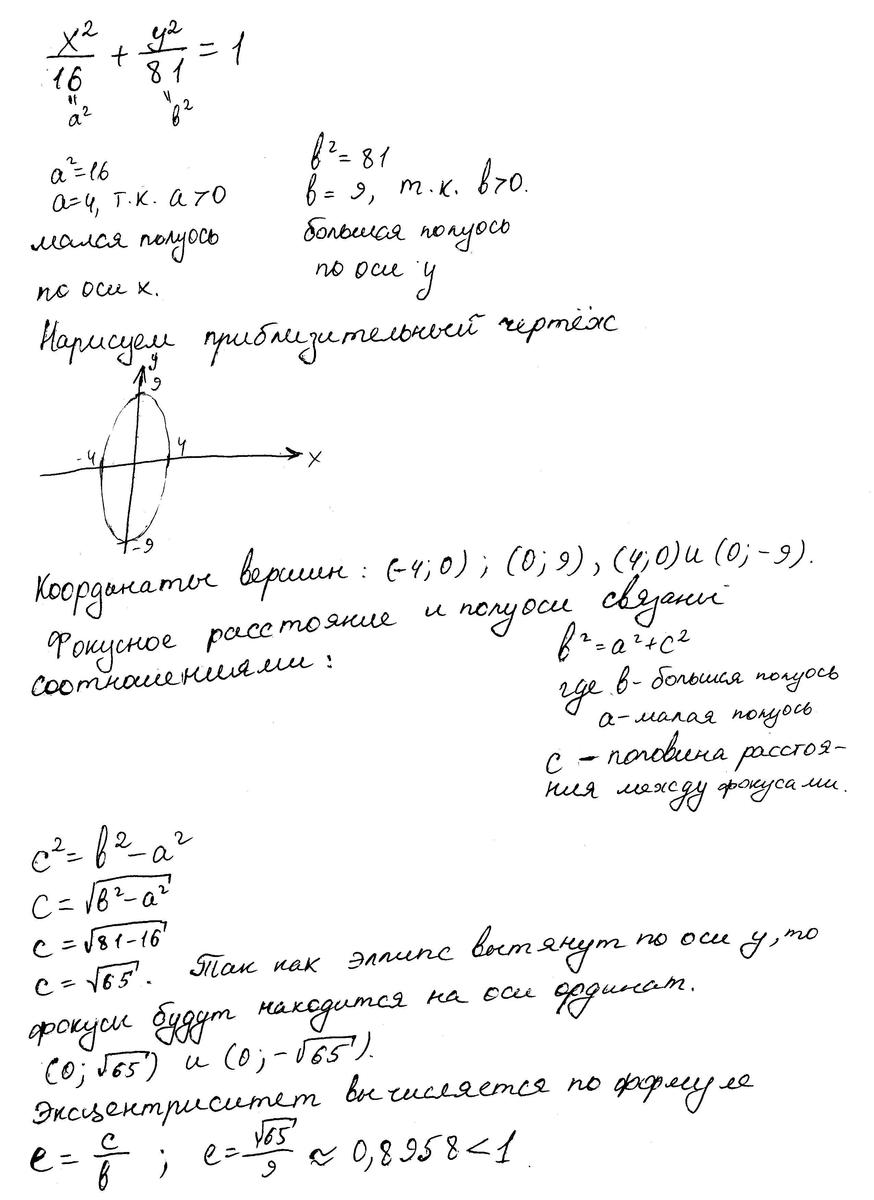 x²/16 + y²/81 = 1
a² b²
a²=16
a=4, т.к. a>0
малая полуось
по оси x.
b²=81
b=9, т.к. b>0.
большая полуось
по оси y
Нарисуем приблизительный чертёж
y
9
-4 4
x
-9
Координаты вершин: (-4;0); (0;9), (4;0) и (0;-9).
Фокусное расстояние и полуоси связаны
соотношениями:
b²=a²+c²
где b- большая полуось
a-малая полуось
c - половина расстоя-
ния между фокусами.
c²=b²-a²
c=√(b²-a²)
c=√(81-16)
c=√65. Так как эллипс вытянут по оси y, то
фокусы будут находится на оси ординат.
(0;√65) и (0;-√65).
Эксцентриситет вычисляется по формуле
e=c/b ; e=√65/9 ≈ 0,8958<1.